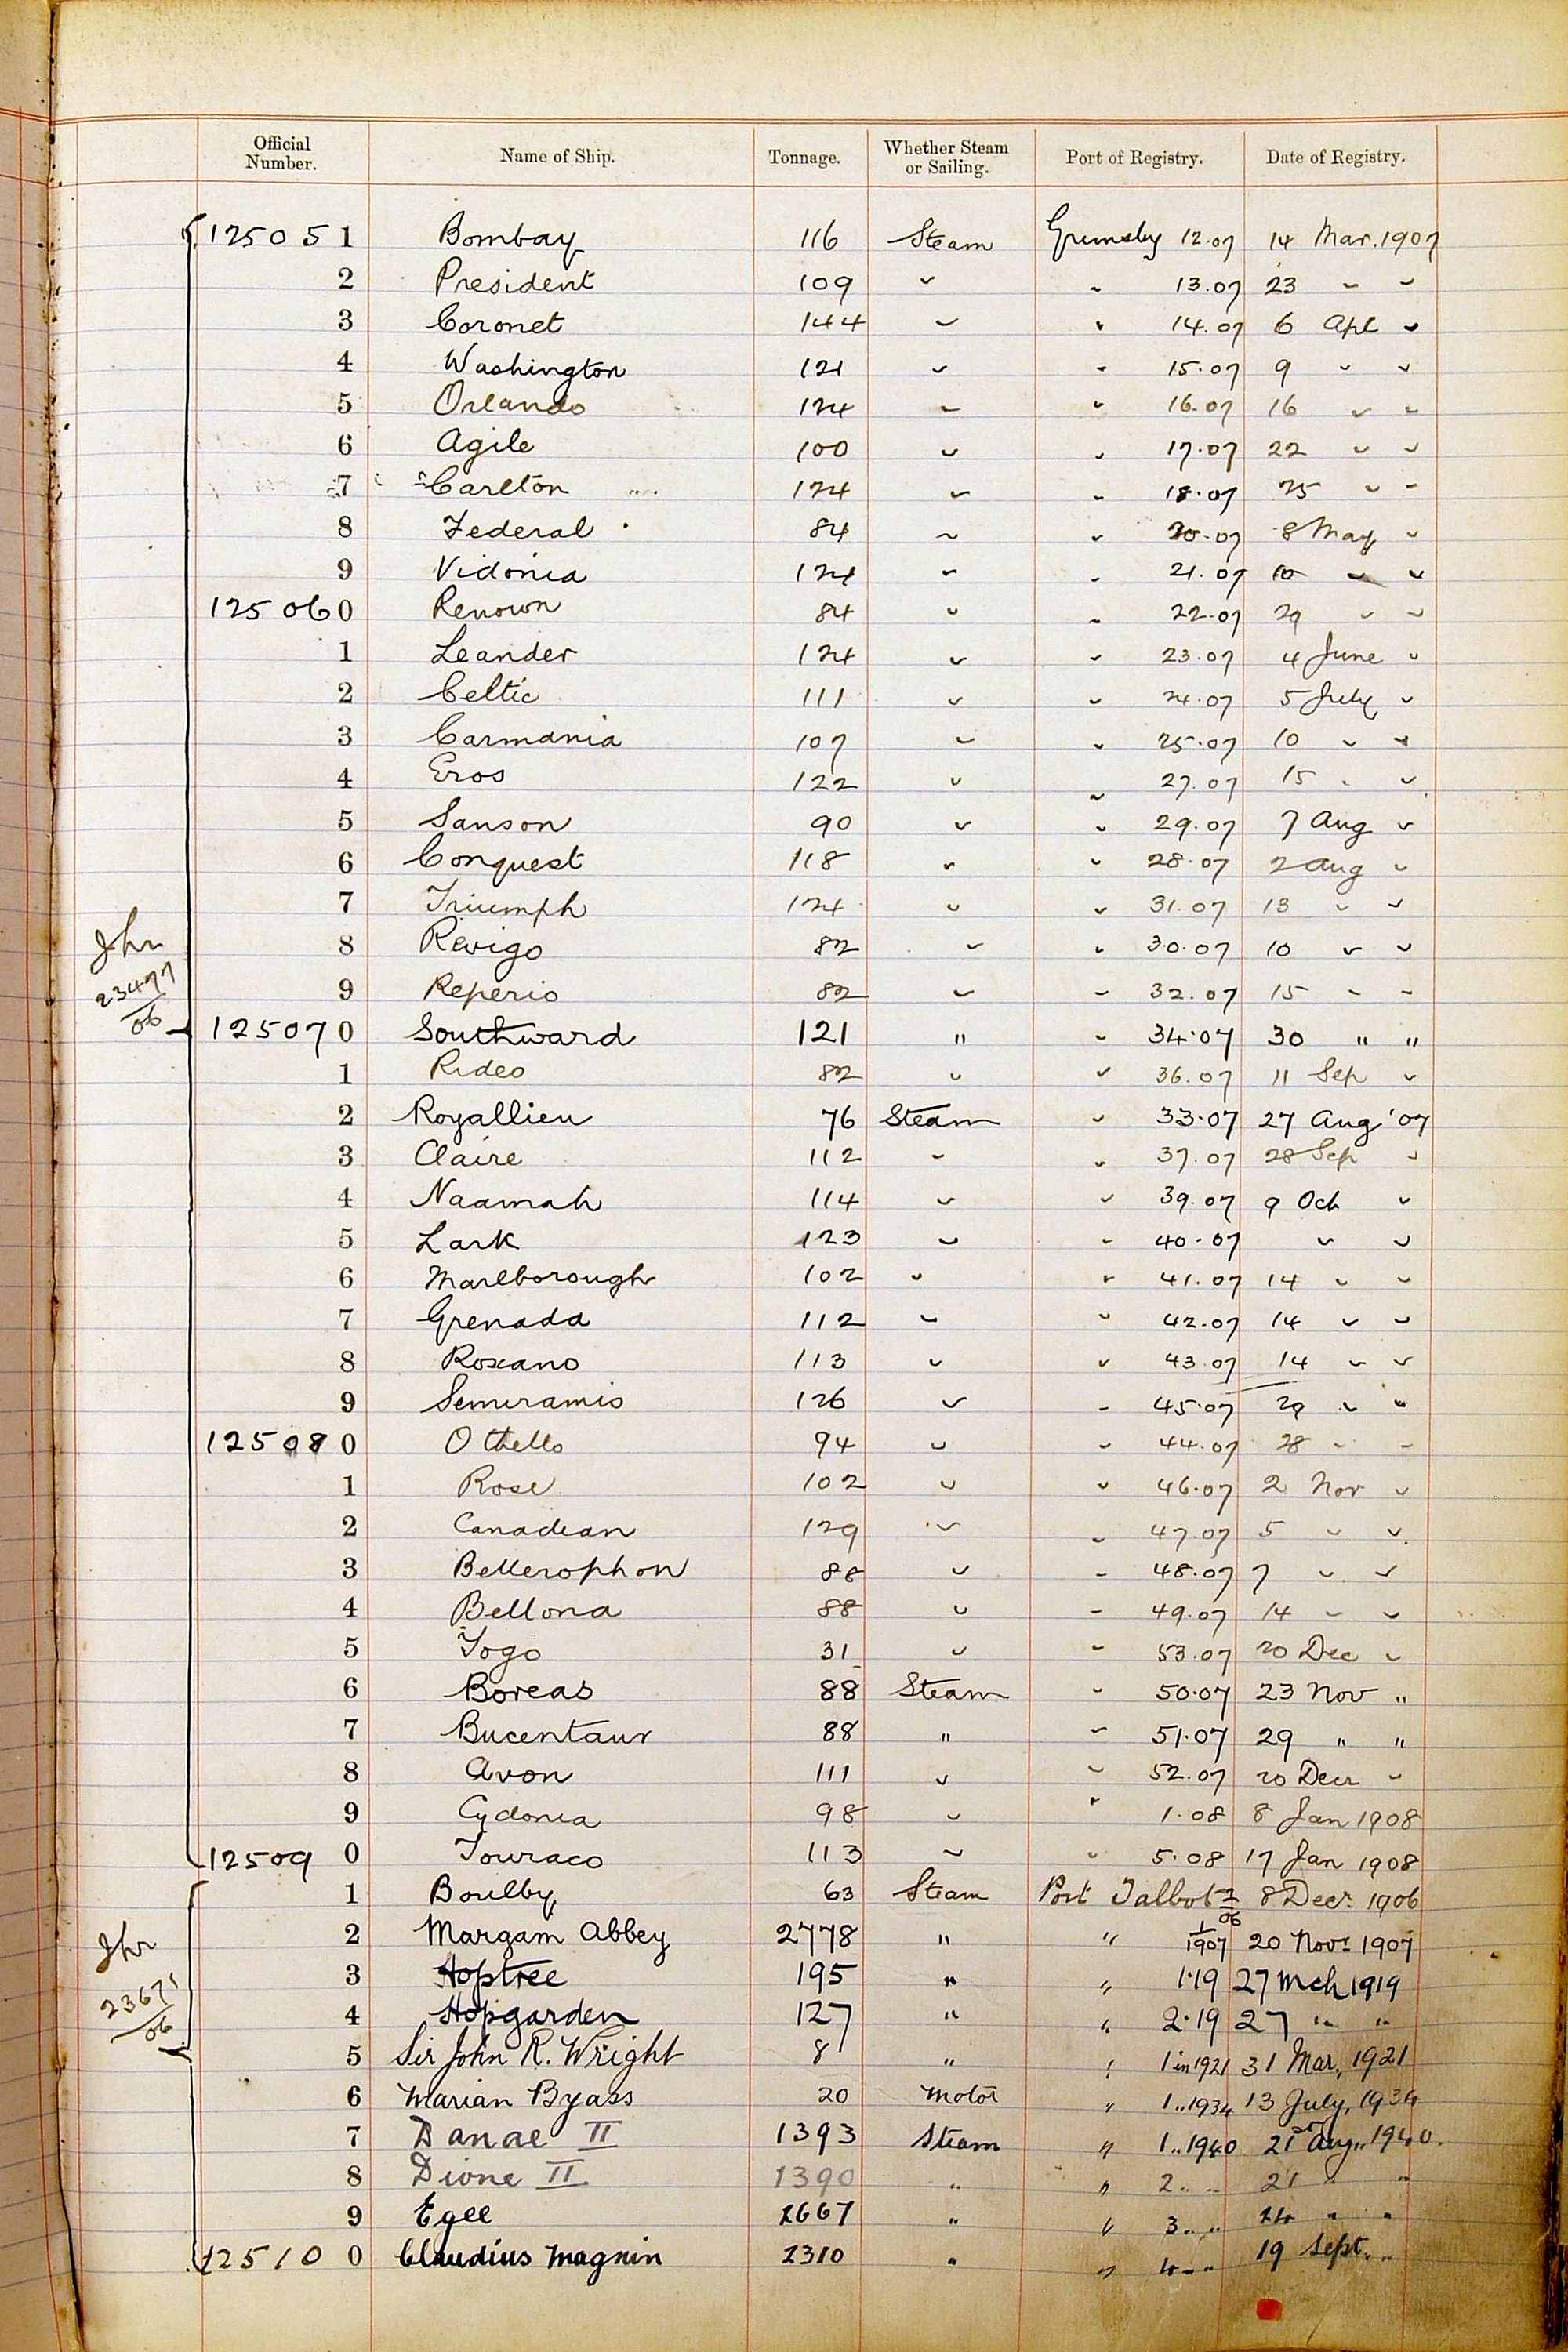 Official Number. Name of Ship. Tonnage. Whether Steam or Sailing. Port of Registry. Date of Registry.
125051 Bombay 116 Steam Grimsby 12.07 14 Mar. 1907
2 President 109 " " 13.07 23 " "
3 Coronet 144 " " 14.07 6 Apl "
4 Washington 121 " " 15.07 9 " "
5 Orlando 124 " " 16.07 16 " "
6 Agile 100 " " 17.07 22 " "
7 Carlton 124 " " 18.07 25 " "
8 Federal 84 " " 20.07 8 May "
9 Vidonia 124 " " 21.07 10 " "
125060 Renown 84 " " 22.07 29 " "
1 Leander 124 " " 23.07 4 June "
2 Celtic 111 " " 24.07 5 July "
3 Carmania 107 " " 25.07 10 " "
4 Eros 122 " " 27.07 15 " "
5 Sanson 90 " " 29.07 7 Aug "
6 Conquest 118 " " 28.07 2 Aug "
7 Triumph 124 " " 31.07 13 " "
Jhr
8 Revigo 82 " " 30.07 10 " "
23477/06
9 Reperio 82 " " 32.07 15 " "
125070 Southward 121 " " 34.07 30 " "
1 Rideo 82 " " 36.07 11 Sep "
2 Royallieu 76 Steam " 33.07 27 Aug '07
3 Claire 112 " " 37.07 28 Sep "
4 Naamah 114 " " 39.07 9 Oct "
5 Lark 123 " " 40.07 " "
6 Marlborough 102 " " 41.07 14 " "
7 Grenada 112 " " 42.07 14 " "
8 Roxano 113 " " 43.07 14 " "
9 Semiramis 126 " " 45.07 29 " "
125080 Othello 94 " " 44.07 28 " "
1 Rose 102 " " 46.07 2 Nov "
2 Canadian 129 " " 47.07 5 " "
3 Bellerophon 88 " " 48.07 7 " "
4 Bellona 88 " " 49.07 14 " "
5 Togo 31 " " 53.07 20 Dec "
6 Boreas 88 Steam " 50.07 23 Nov "
7 Bucentaur 88 " " 51.07 29 " "
8 Avon 111 " " 52.07 20 Decr "
9 Cydonia 98 " " 1.08 8 Jan 1908
125090 Touraco 113 " " 5.08 17 Jan 1908
1 Boulby 63 Steam Port Talbot 2/06 8 Decr. 1906
2 Margam Abbey 2778 " " 1/1907 20 Novr. 1907
Jhr
3 Hoptree 195 " " 1.19 27 Mch 1919
23671/06
4 Hopgarden 127 " " 2.19 27 " "
5 Sir John R. Wright 8 " " 1 in 1921 31 Mar., 1921
6 Marian Byass 20 Motor " 1 .. 1934 13 July, 1934
7 Danae II 1393 Steam " 1 .. 1940 21st Aug., 1940.
8 Dione II 1390 " " 2 " " 21 " "
9 Egee 2667 " " 3 " " 24 " "
125100 Claudius Magnin 2310 " " 4 " " 19 Sept. "